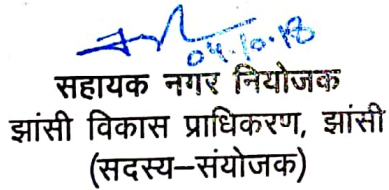 04.10.18
सहायक नगर नियोजक
झांसी विकास प्राधिकरण, झांसी
(सदस्य–संयोजक)